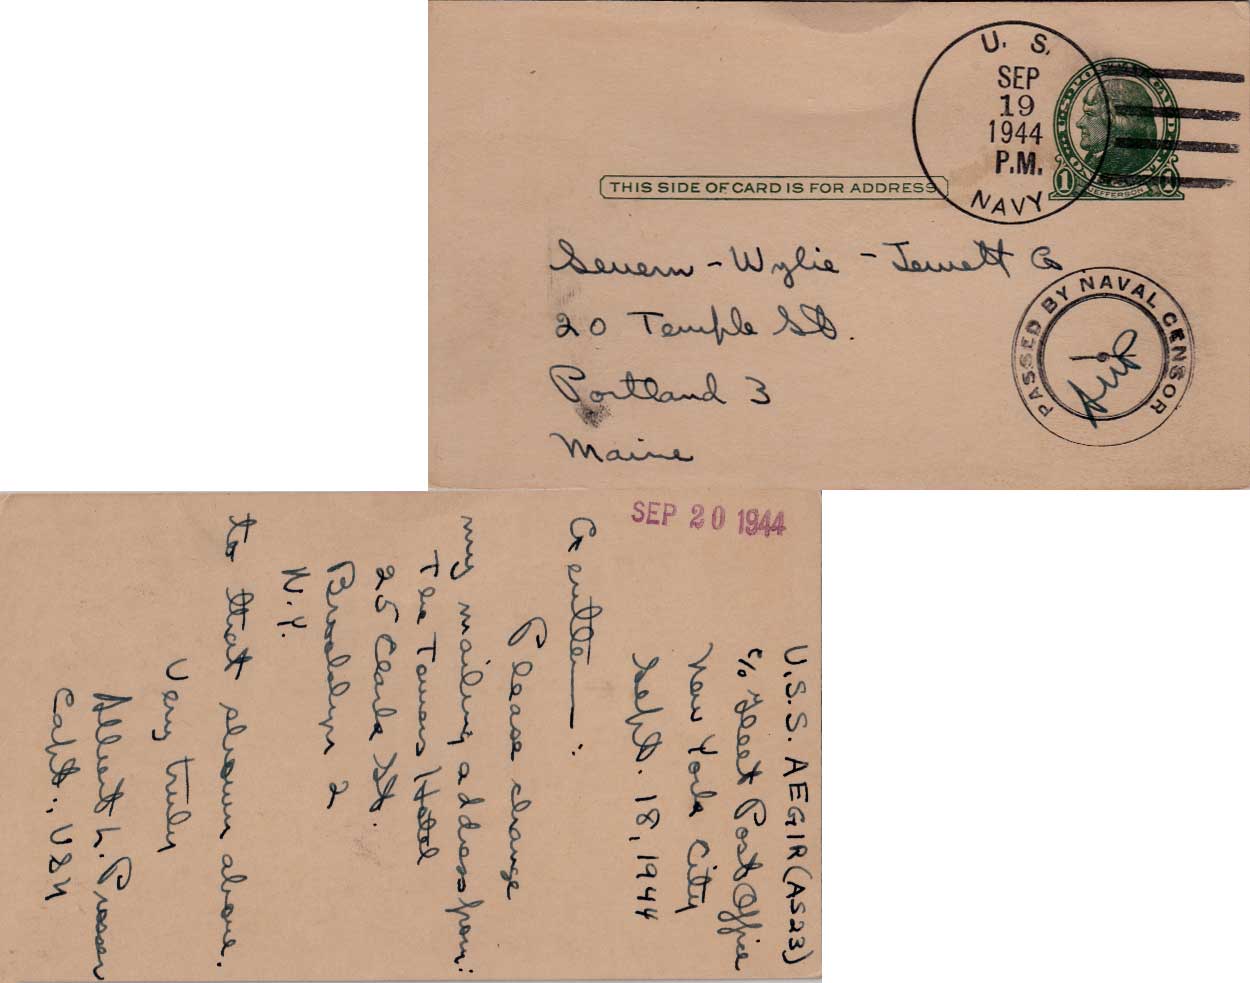 U. S.
SEP
19
1944
P.M.
NAVY
U.S. POSTAL CARD
ONE CENT
1 JEFFERSON 1
THIS SIDE OF CARD IS FOR ADDRESS
Severn - Wylie - Jewett Co
20 Temple St.
Portland 3
Maine
PASSED BY NAVAL CENSOR
SEP 20 1944
U.S.S. AEGIR (AS23)
c/o Fleet Post Office
New York City
Sept. 18, 1944
Gentlem—:
Please change
my mailing address from:
The Towers Hotel
25 Clark St.
Brooklyn 2
N.Y.
to that shown above.
Very truly
Albert L. Prosser
Capt., USN